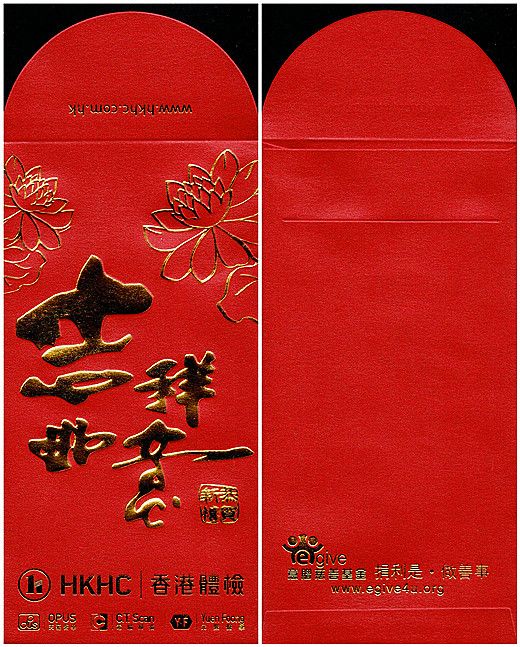 www.hkhc.com.hk
吉祥
如意
HKHC 香港體檢
OPUS
CT Scan
YF Yuen Foong
egive
慈善基金 捐利是・做善事
www.egive4u.org